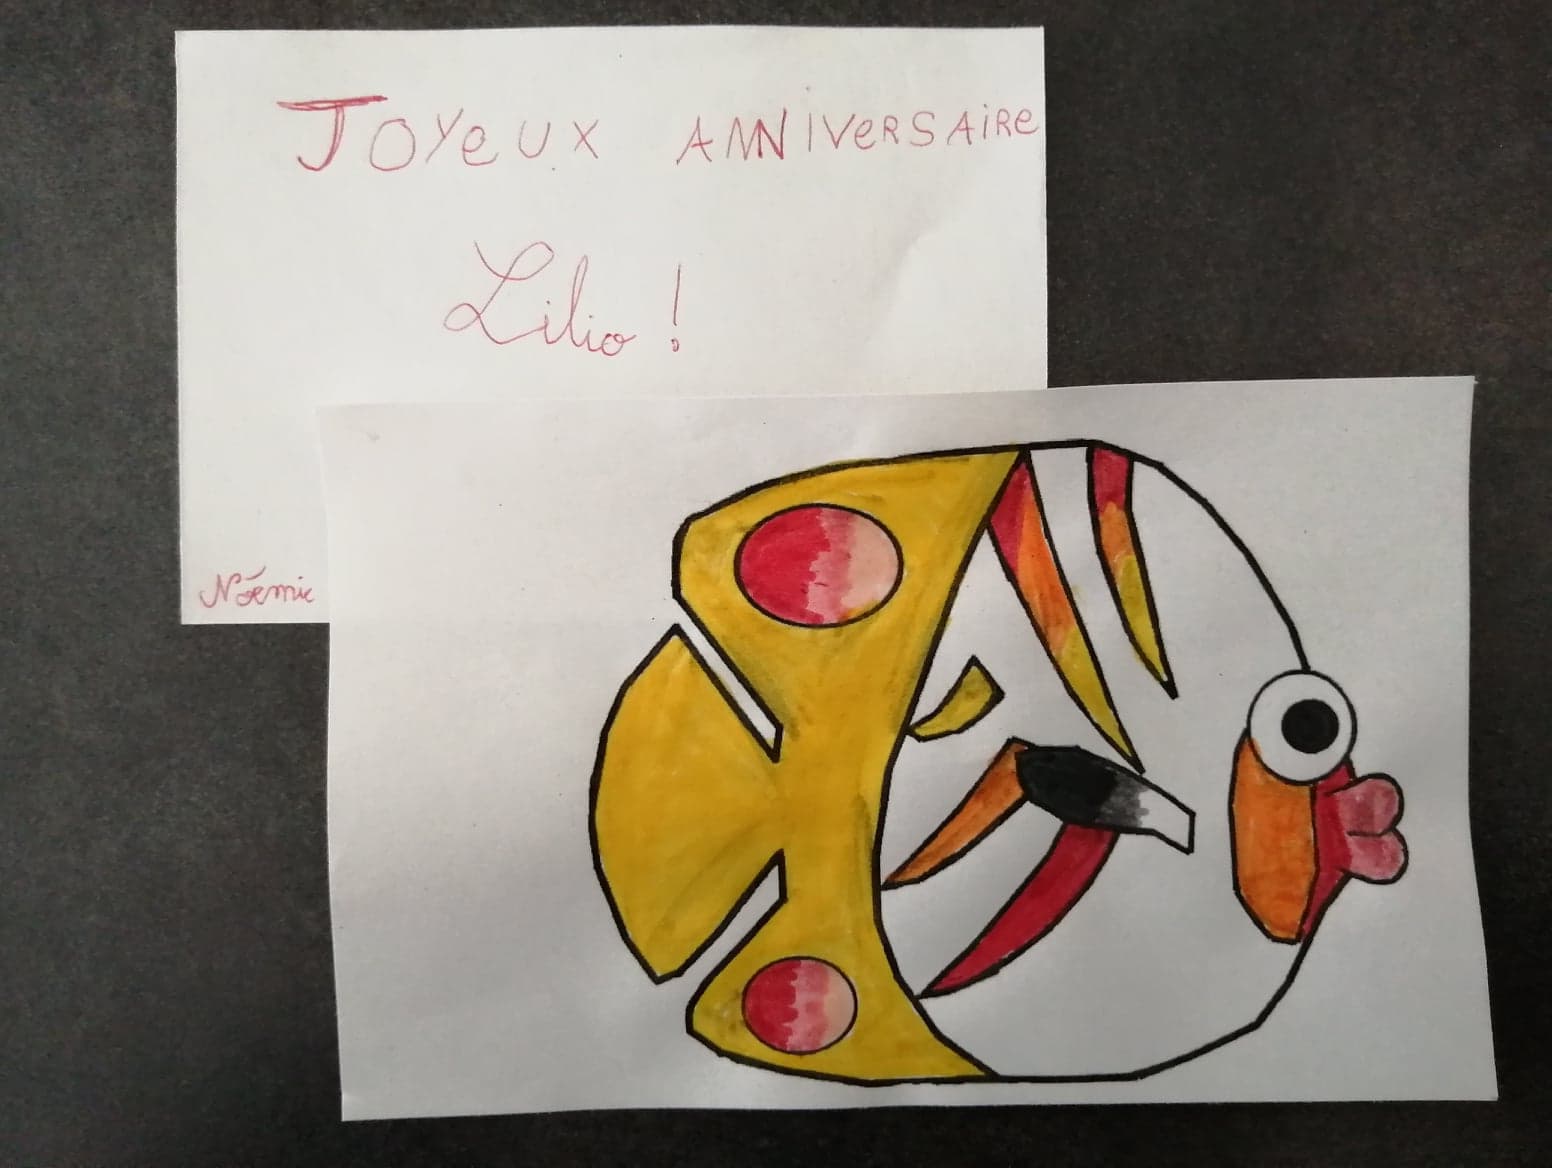 Joyeux ANNIVERSAIRE
Lilio !
Noémie